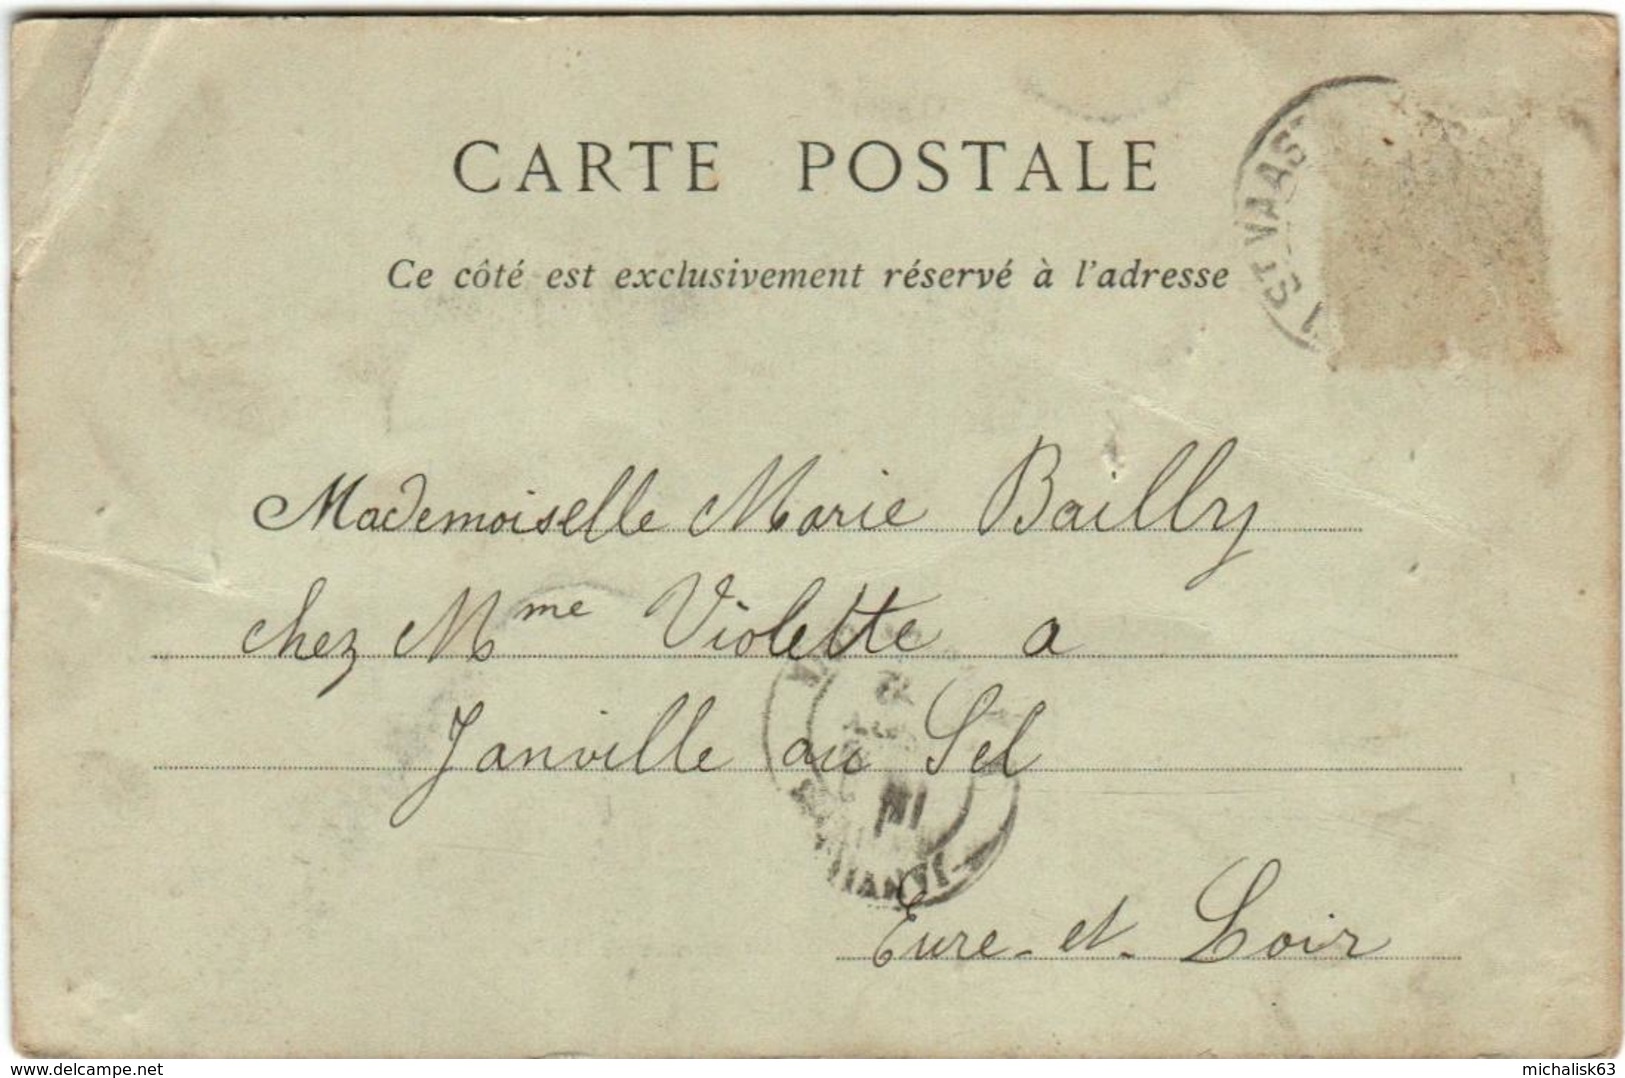 CARTE POSTALE
Ce côté est exclusivement réservé à l'adresse
ST VAAS
Mademoiselle Marie Bailly
chez Mme Violette a
Janville au Sel
Eure-et-Loir
www.delcampe.net
michalisk63